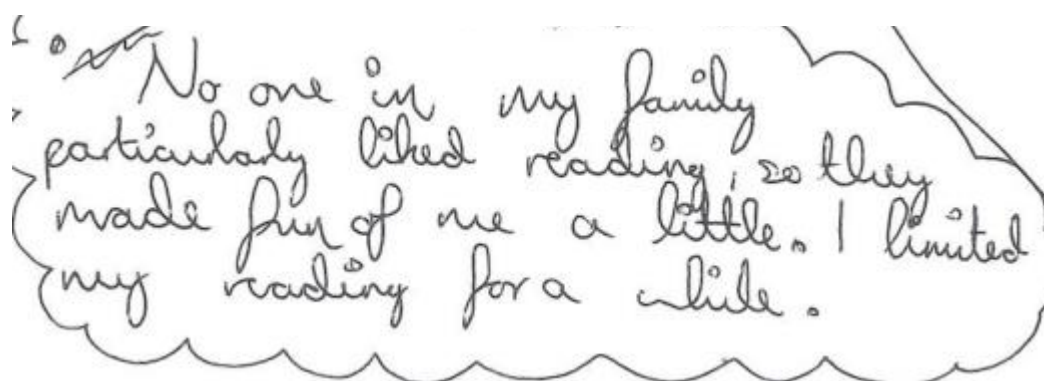 No one in my family
particularly liked reading, so they
made fun of me a little. I limited
my reading for a while.